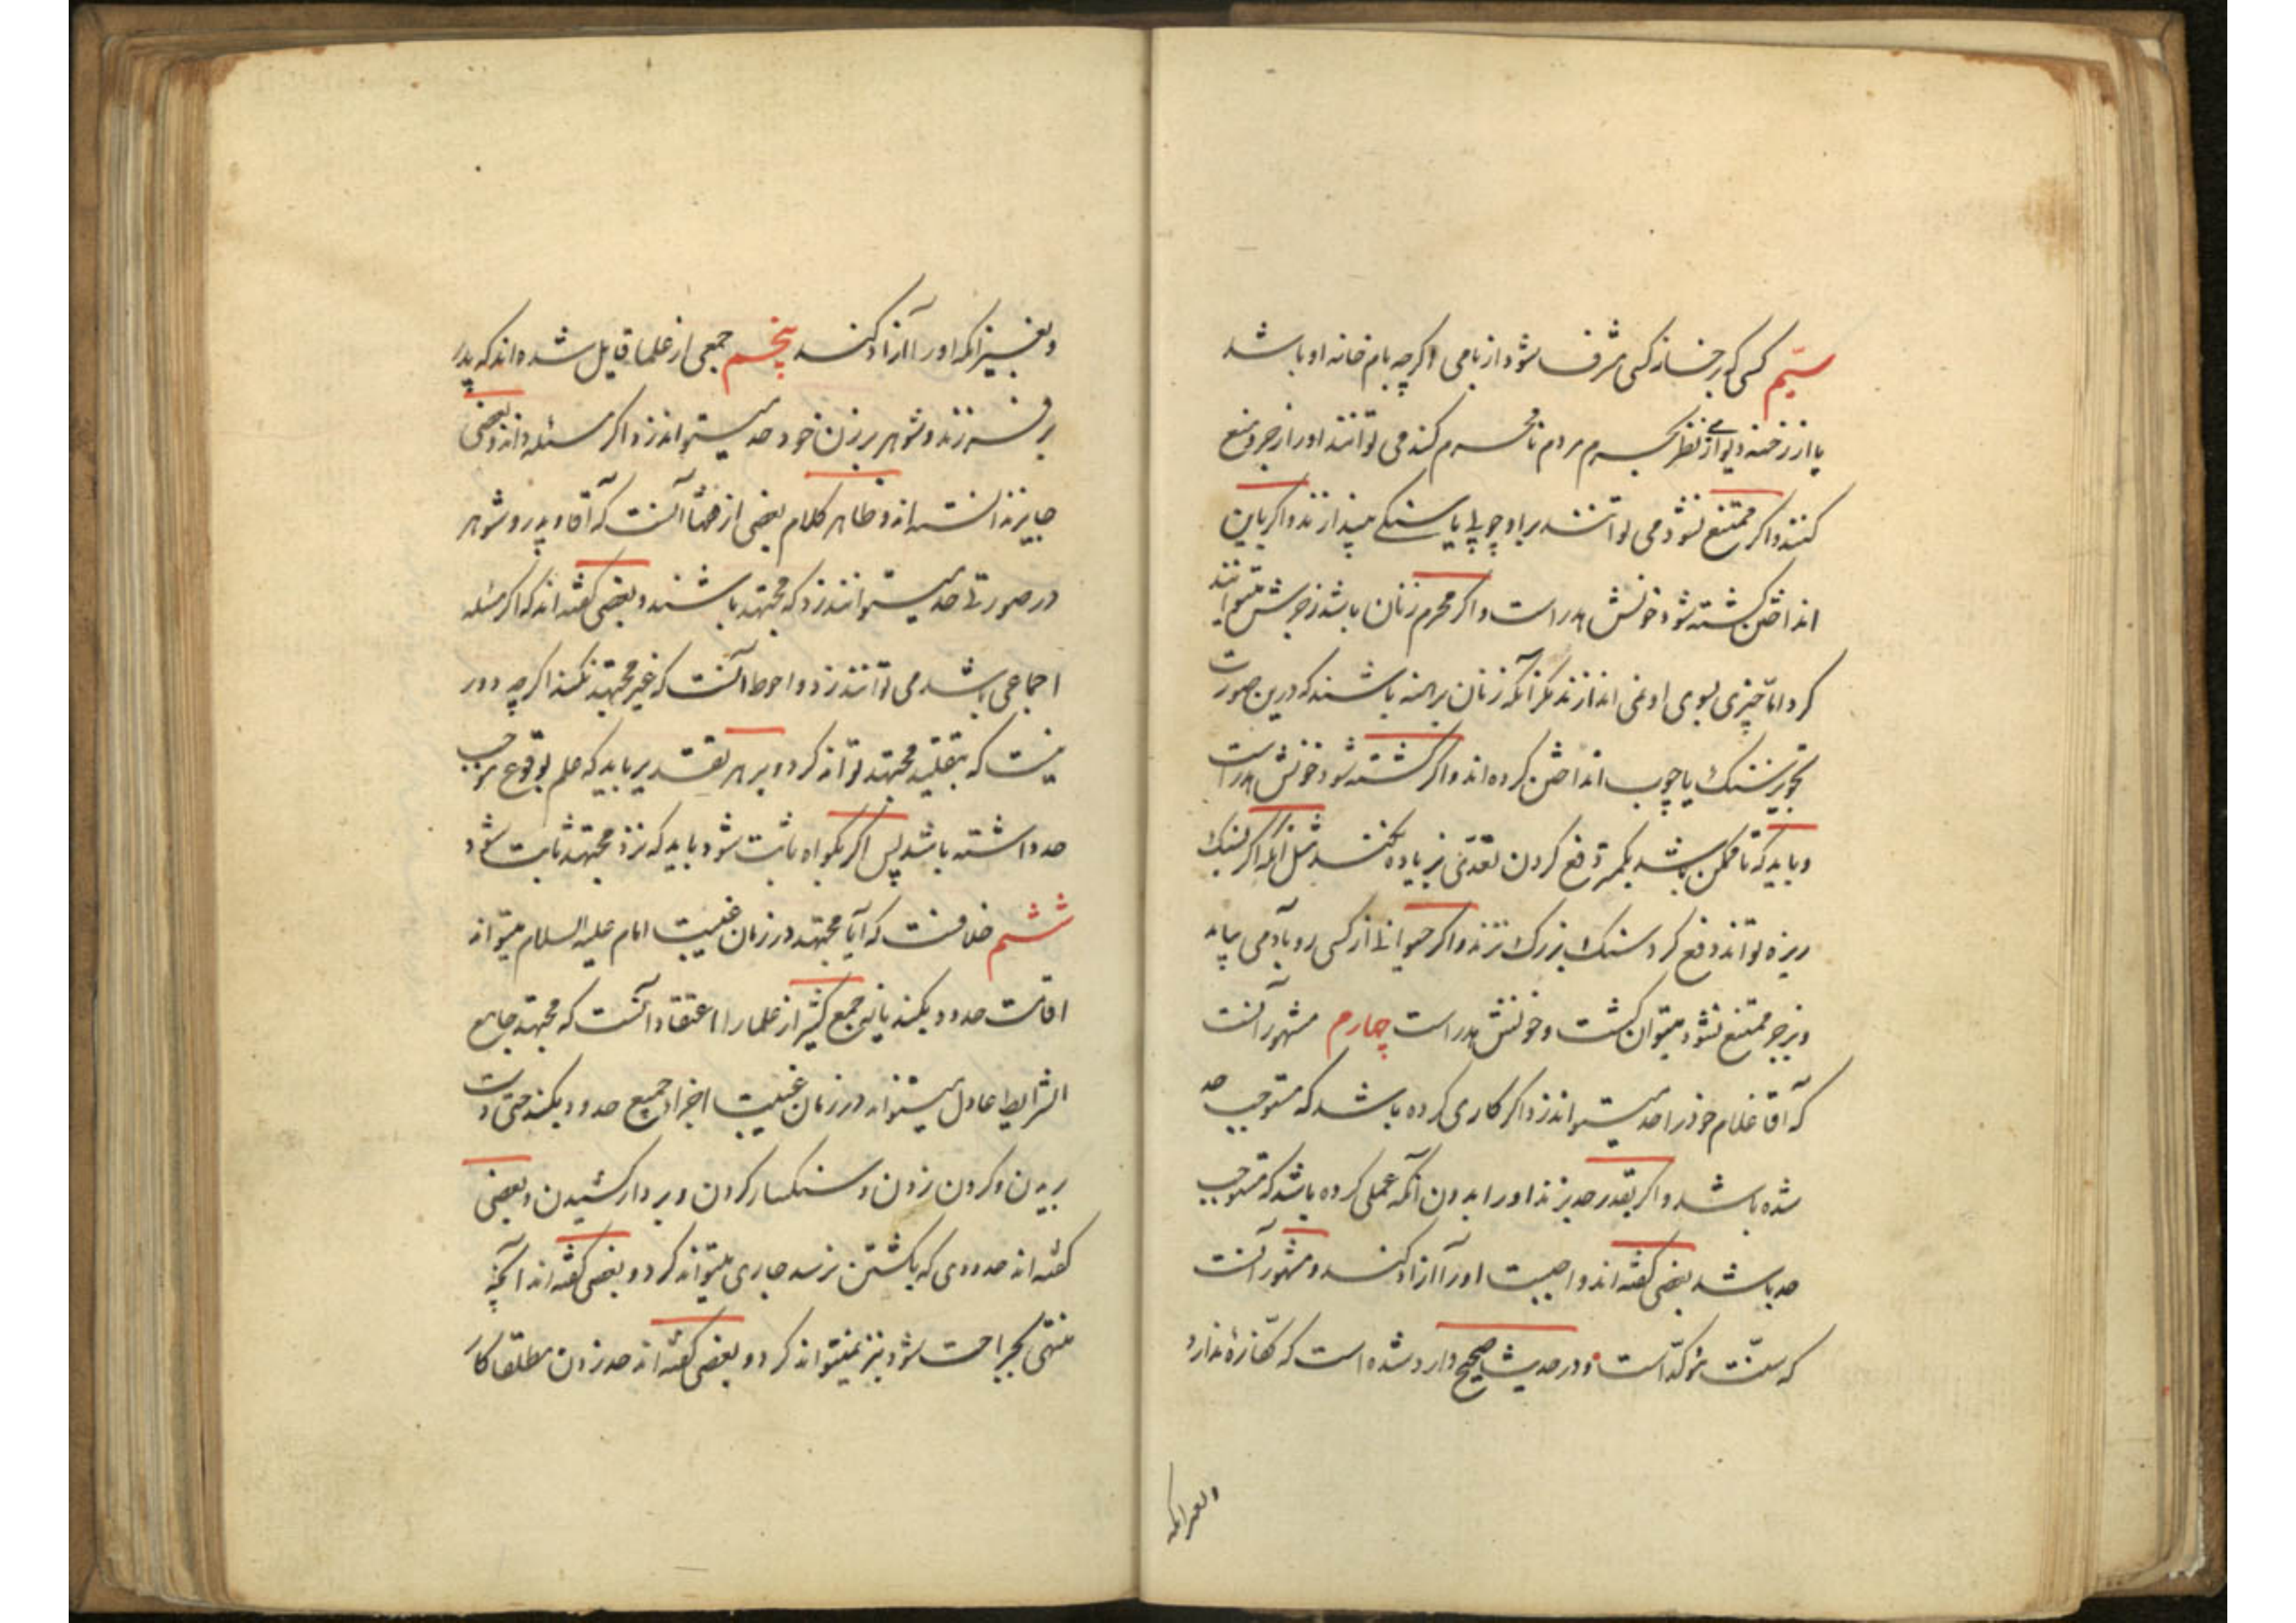 سیّم کسی که بر خانه کسی مشرف شود از بامی اگرچه بام خانه او باشد
یا از رخنه دیواری نظر بحرم مردم نامحرم کند می توانند او را زجر و منع
کنند و اگر ممتنع نشود می توانند بر او چوبی یا سنگی بیندازند و اگر بان
انداختن کشته شود خونش هدر است و اگر محرم زنان باشد زجرش میتوانند
کرد اما چیزی بسوی او نمی اندازند مگر آنکه زنان برهنه باشند که درین صورت
تجویز سنگ یا چوب انداختن کرده اند و اگر کشته شود خونش هدر است
و باید که تا ممکن باشد بکمتر دفع کردن تعدّی بزیاده نکنند مثل آنکه اگر بسنگ
ریزه تواند دفع کرد سنگ بزرگ نزند و اگر حیوانی از کسی رو بآدمی بیاید
و بزجر ممتنع نشود میتوان کشت و خونش هدر است چهارم مشهور آنست
که آقا غلام خود را حد میتواند زد اگر کاری کرده باشد که مستوجب حد
شده باشد و اگر بقدر حد بزند او را بدون آنکه عملی کرده باشد که مستوجب
حد باشد بعضی گفته اند واجبست او را آزاد کند و مشهور آنست
که سنّت مؤکّد است و در حدیث صحیح وارد شده است که کفّارهٔ ندارد
و بغیر آنکه او را آزاد کند پنجم جمعی از علما قایل شده اند که پدر
بر فرزند و شوهر بر زن خود حد میتواند زد اگر مسئله داند و بعضی
جایز ندانسته اند و ظاهر کلام بعضی از فقها آنست که آقا و پدر و شوهر
در صورتی حد میتوانند زد که مجتهد باشند و بعضی گفته اند که اگر مسئله
اجماعی باشد می توانند زد و احوط آنست که غیر مجتهد نکند اگرچه دور
نیست که بتقلید مجتهد تواند کرد و بر هر تقدیر باید که علم بوقوع موجب
حد داشته باشد پس اگر بگواه ثابت شود باید که نزد مجتهد ثابت شود
ششم خلافست که آیا مجتهد در زمان غیبت امام علیه السلام میتواند
اقامت حدود بکند یا نی جمع کثیر از علما را اعتقاد آنست که مجتهد جامع
الشرایط عادل میتواند در زمان غیبت اجراء جمیع حدود بکند حتی دست
بریدن و گردن زدن و سنگسار کردن و بر دار کشیدن و بعضی
گفته اند حدودی که بکشتن نرسد جاری میتواند کرد و بعضی گفته اند آنچه
منتهی بجراحت شود نیز نمیتواند کرد و بعضی گفته اند حد زدن مطلقا کار